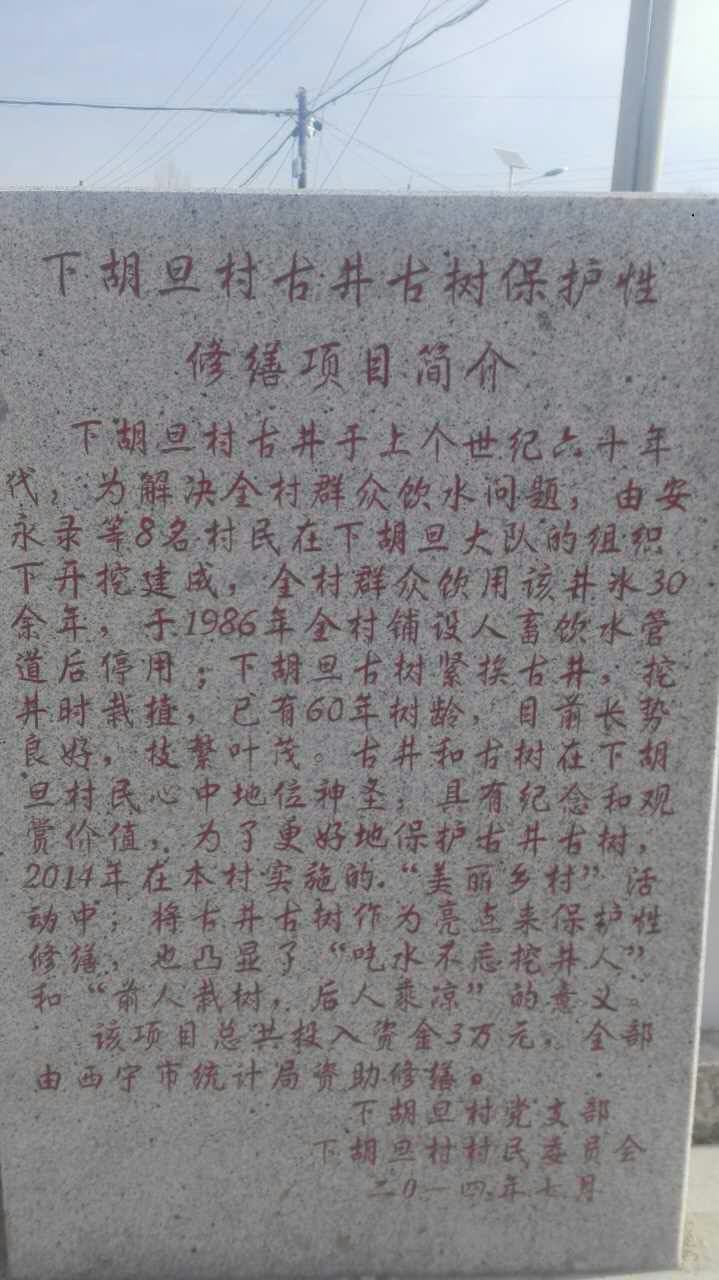 下胡旦村古井古树保护性
修缮项目简介
下胡旦村古井于上个世纪六十年
代，为解决全村群众饮水问题，由安
永录等8名村民在下胡旦大队的组织
下开挖建成，全村群众饮用该井水30
余年，于1986年全村铺设人畜饮水管
道后停用；下胡旦古树紧挨古井，挖
井时栽植，已有60年树龄，目前长势
良好，枝繁叶茂。古井和古树在下胡
旦村民心中地位神圣，具有纪念和观
赏价值，为了更好地保护古井古树，
2014年在本村实施的“美丽乡村”活
动中，将古井古树作为亮点来保护性
修缮，也凸显了“吃水不忘挖井人”
和“前人栽树，后人乘凉”的意义。
该项目总共投入资金3万元，全部
由西宁市统计局资助修缮。
下胡旦村党支部
下胡旦村村民委员会
二0一四年七月